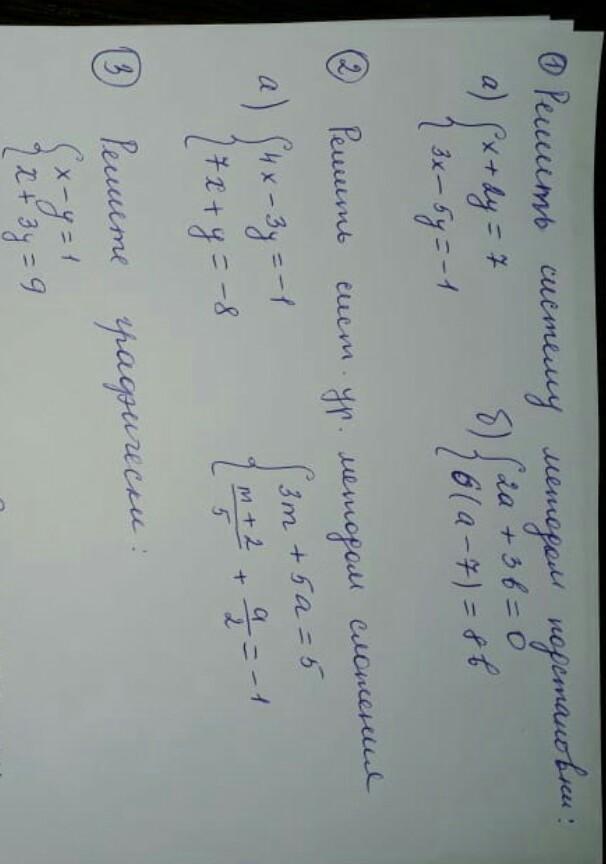 ① Решить систему методом подстановки:
а) { x + 2y = 7 б) { 2a + 3b = 0
{ 3x - 5y = -1 { 6(a - 7) = 8b
② Решить сист. ур. методом сложения
а) { 4x - 3y = -1 { 3m + 5a = 5
{ 7x + y = -8 { (m + 2)/5 + a/2 = -1
③ Решите графически:
{ x - y = 1
{ x + 3y = 9